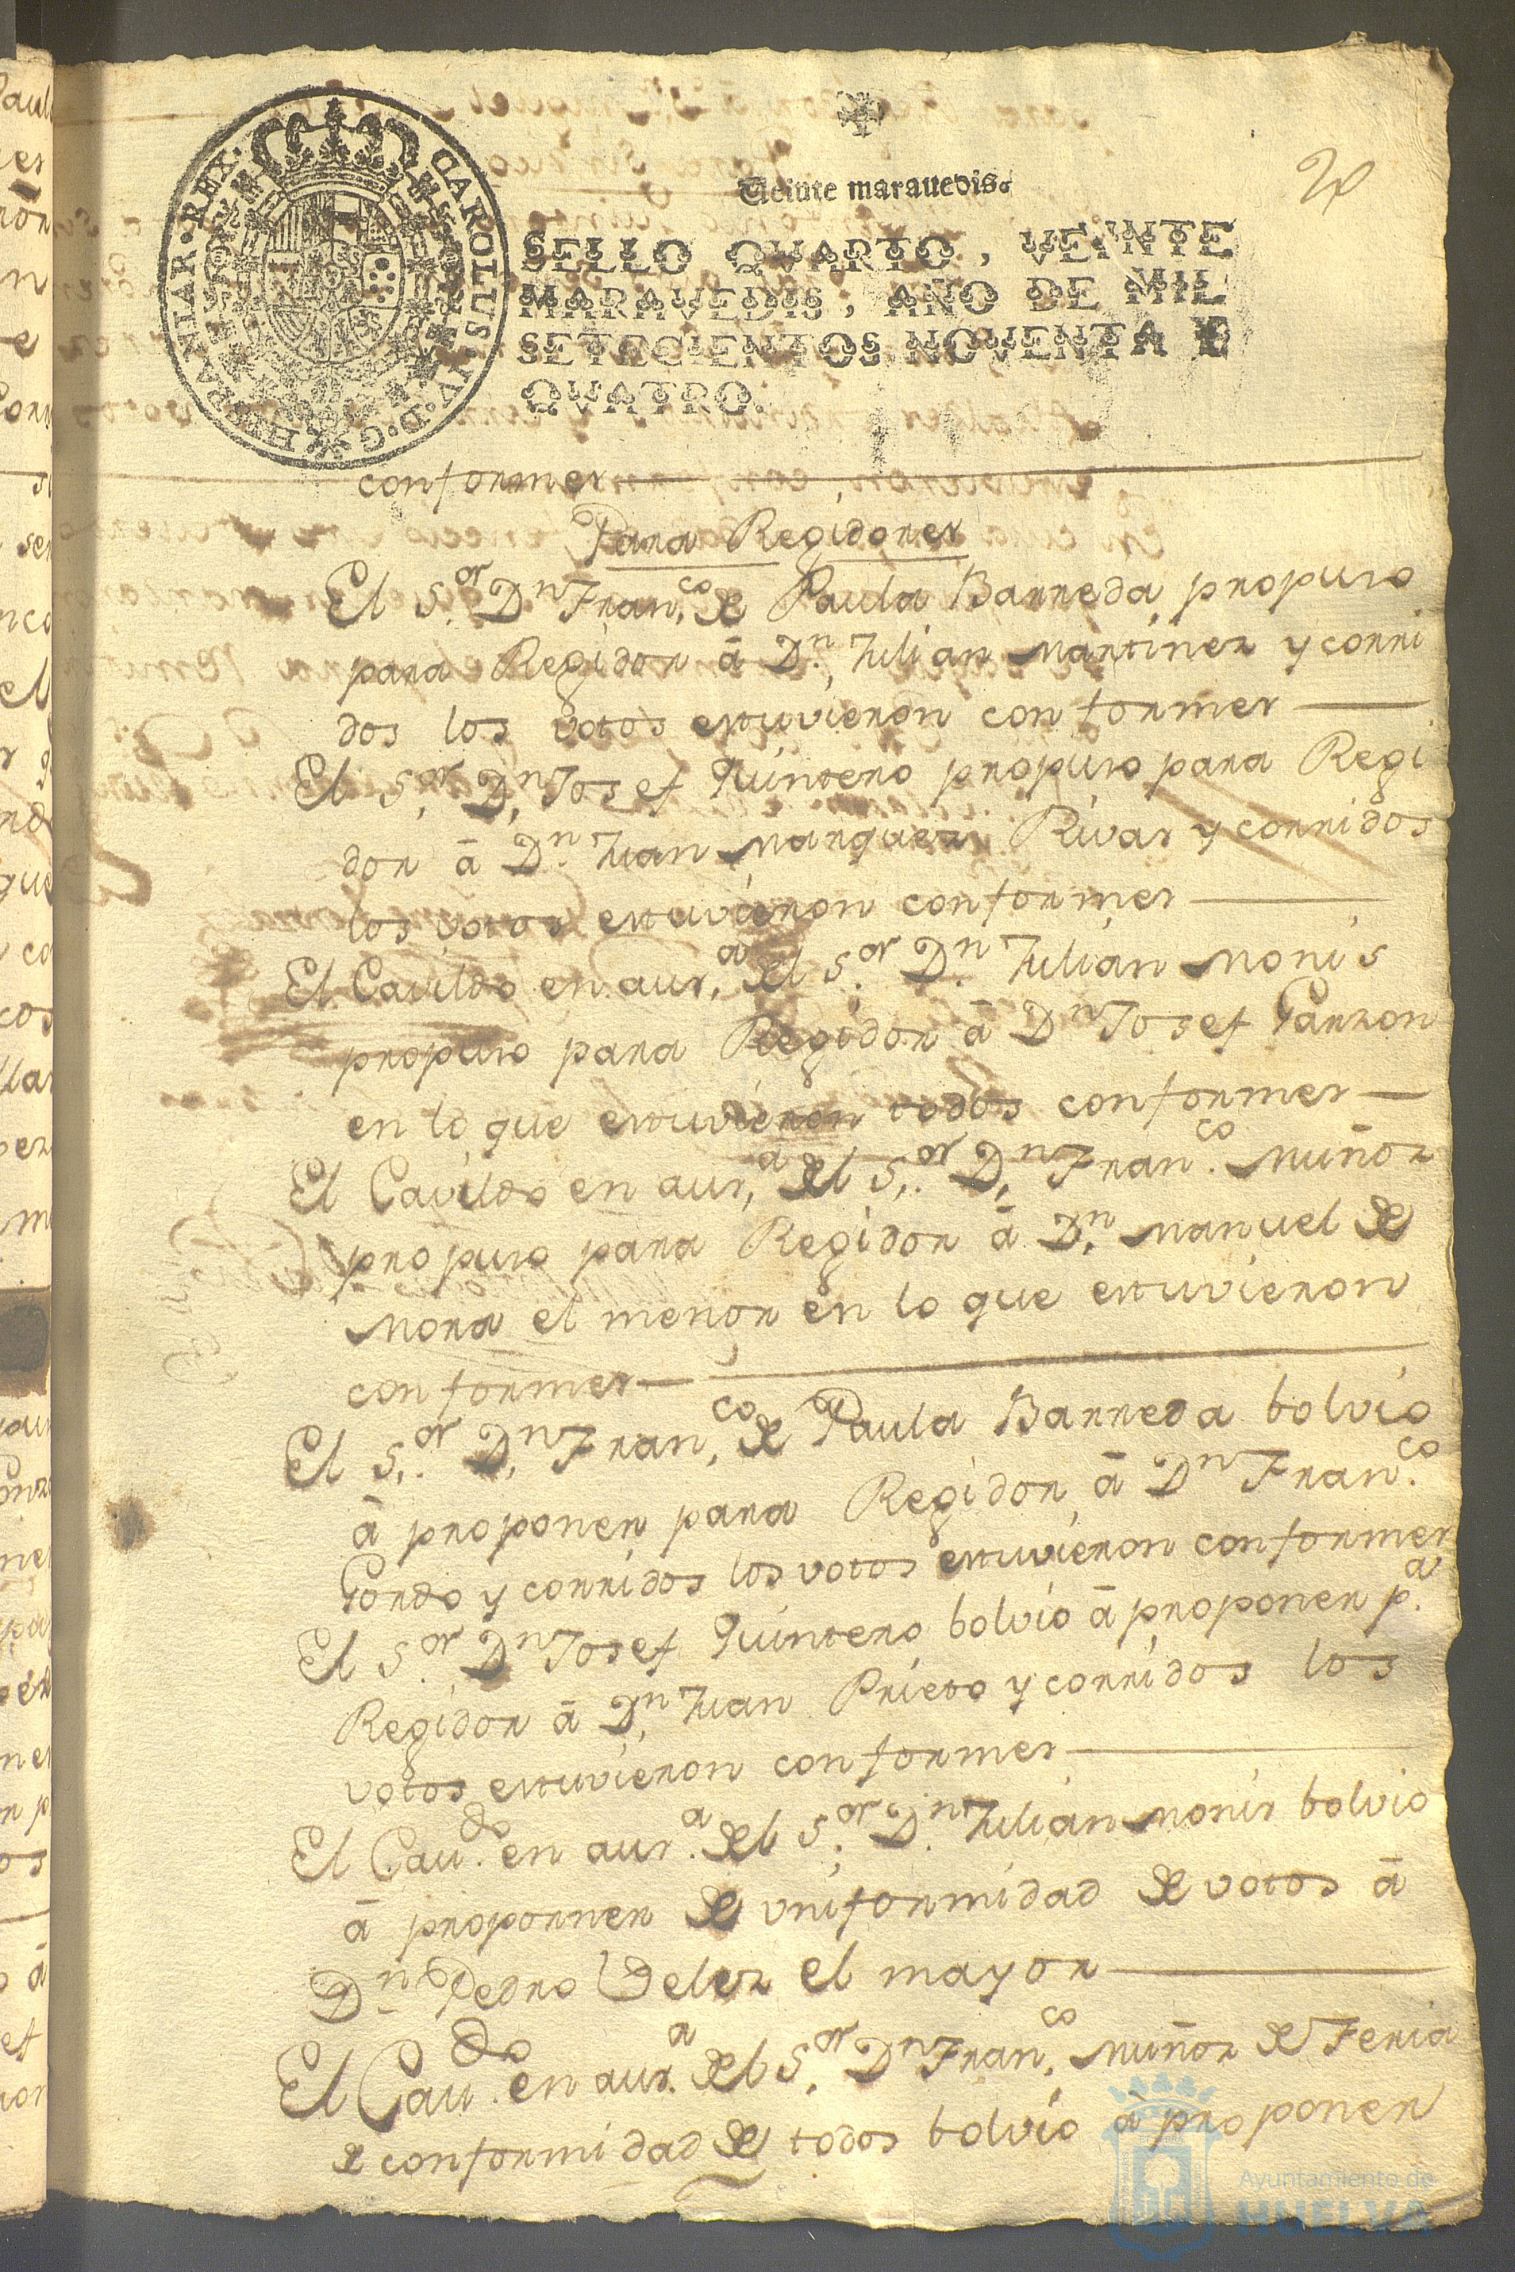 20
Veinte marauedis.
SELLO QVARTO, VEINTE
MARAVEDIS, AÑO DE MIL
SETECIENTOS NOVENTA Y
QVATRO.
CAROLUS·IV·D·G·HISPANIAR·REX·
conformes
Para Regidores
El S.or D.n Fran.co de Paula Barreda propuso
para Regidor â D.n Julian Martinez y corri
dos los votos estuvieron conformes
El S.or D.n Josef Quintero propuso para Regi
dor â D.n Juan Marquez Rivas y corridos
los votos estuvieron conformes
El Cavildo en aus.a del S.or D.n Julian Monis
propuso para Regidor â D.n Josef Garzon
en lo que estuvieron todos conformes
El Cavildo en aus.a del S.or D.n Fran.co Muñoz
propuso para Regidor â D.n Manuel de
Mora el menor en lo que estuvieron
conformes
El S.or D.n Fran.co de Paula Barreda bolvio
â proponer para Regidor â D.n Fran.co
Gordo y corridos los votos estuvieron conformes
El S.or D.n Josef Quintero bolvio â proponer p.a
Regidor â D.n Juan Prieto y corridos los
votos estuvieron conformes
El Cau.do en aus.a del S.or D.n Julian Monis bolvio
â proporner de vniformidad de votos â
D.n Pedro Velez el mayor
El Cau.do en aus.a del S.or D.n Fran.co Muñoz de Feria
de conformidad de todos bolvio â proponer
Ayuntamiento de
HUELVA